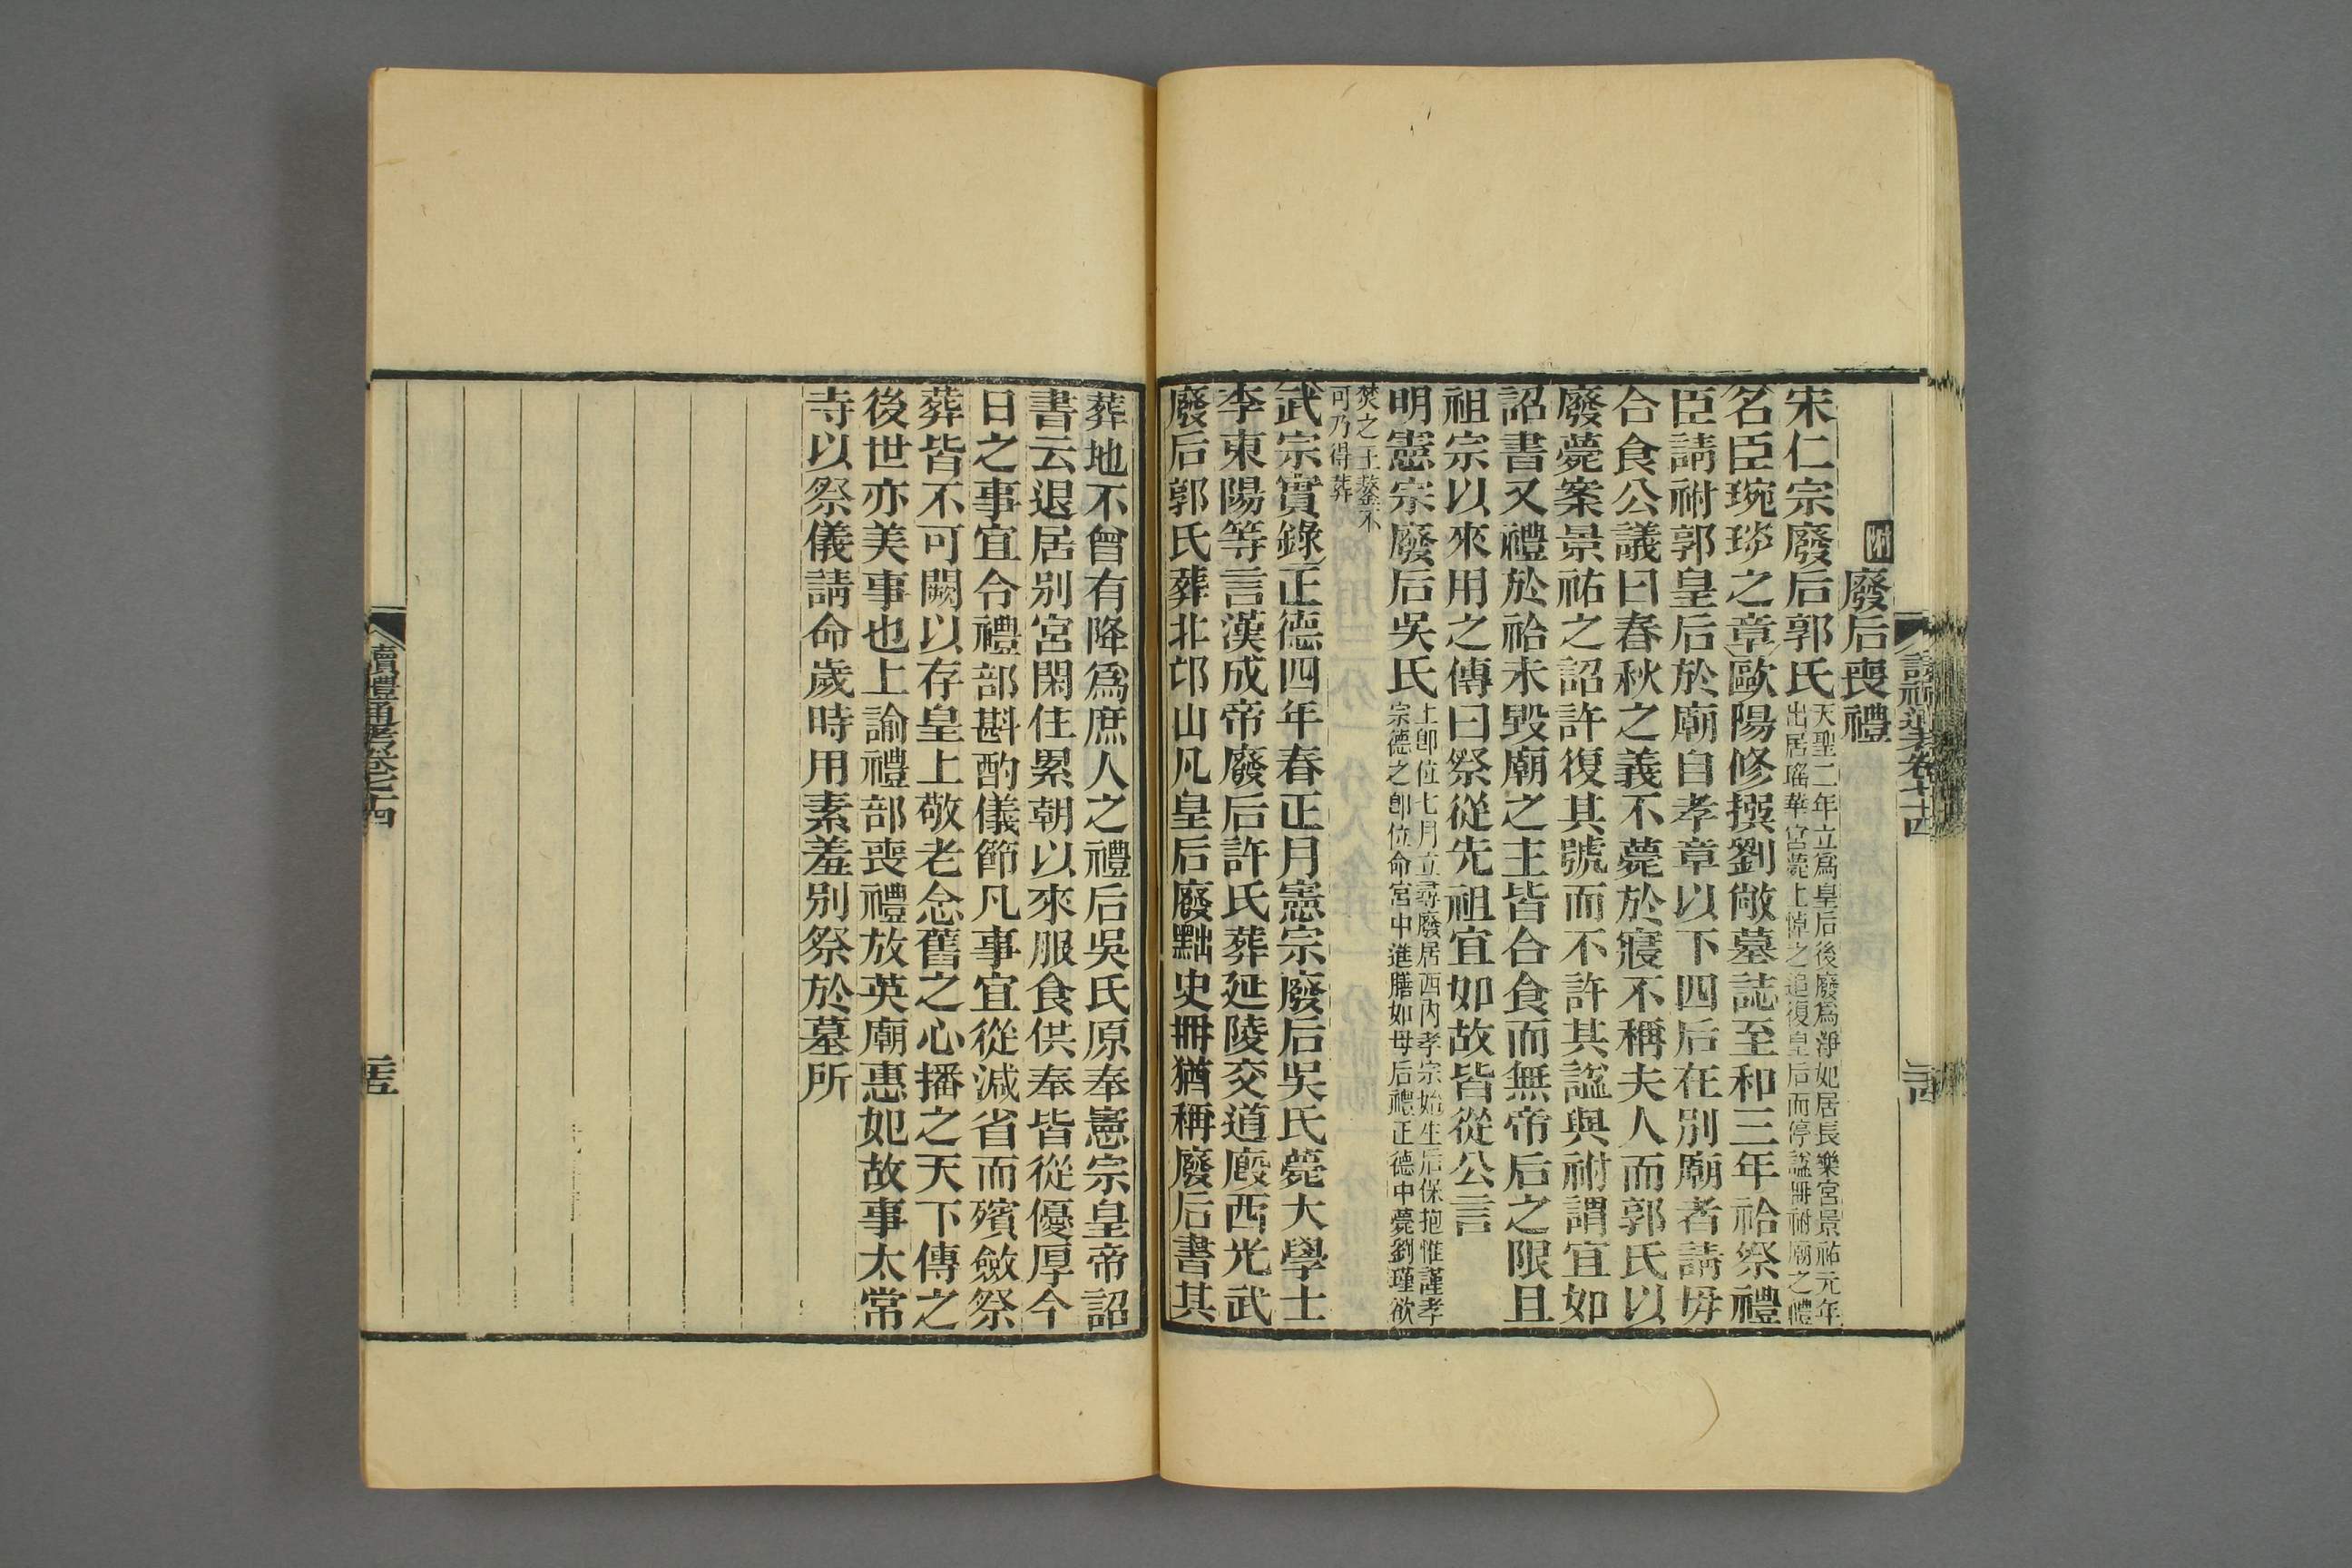 附廢后喪禮
宋仁宗廢后郭氏天聖二年立爲皇后後廢爲淨妃居長樂宮景祐元年
出居瑤華宮薨上悼之追復皇后而停謚冊祔廟之禮
名臣琬琰之章歐陽修撰劉敞墓誌至和三年祫祭禮
臣請祔郭皇后於廟自孝章以下四后在別廟者請毋
合食公議曰春秋之義不薨於寢不稱夫人而郭氏以
廢薨案景祐之詔許復其號而不許其謚與祔謂宜如
詔書又禮於祫未毀廟之主皆合食而無帝后之限且
祖宗以來用之傳曰祭從先祖宜如故皆從公言
明憲宗廢后吳氏上卽位七月立尋廢居西內孝宗始生后保抱惟謹孝
宗德之卽位命宮中進膳如母后禮正德中薨劉瑾欲
焚之王鏊不
可乃得葬
武宗實錄正德四年春正月憲宗廢后吳氏薨大學士
李東陽等言漢成帝廢后許氏葬延陵交道廄西光武
廢后郭氏葬北邙山凡皇后廢黜史冊猶稱廢后書其
葬地不曾有降爲庶人之禮后吳氏原奉憲宗皇帝詔
書云退居別宮閑住累朝以來服食供奉皆從優厚今
日之事宜合禮部斟酌儀節凡事宜從減省而殯斂祭
葬皆不可闕以存皇上敬老念舊之心播之天下傳之
後世亦美事也上諭禮部喪禮放英廟惠妃故事太常
寺以祭儀請命歲時用素羞別祭於墓所
讀禮通考卷十四